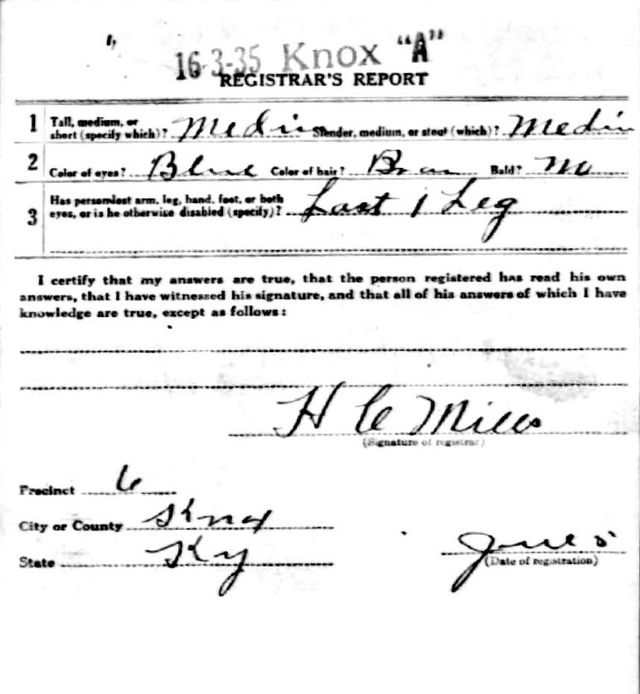 16-3-35 Knox "A"
REGISTRAR'S REPORT
1 Tall, medium, or short (specify which)? Medium Slender, medium, or stout (which)? Medium
2 Color of eyes? Blue Color of hair? Brown Bald? No
3 Has person lost arm, leg, hand, foot, or both eyes, or is he otherwise disabled (specify)? Lost 1 Leg
I certify that my answers are true, that the person registered has read his own
answers, that I have witnessed his signature, and that all of his answers of which I have
knowledge are true, except as follows:
H C Mills
(Signature of registrar)
Precinct 6
City or County Knox
State Ky
June 5
(Date of registration)